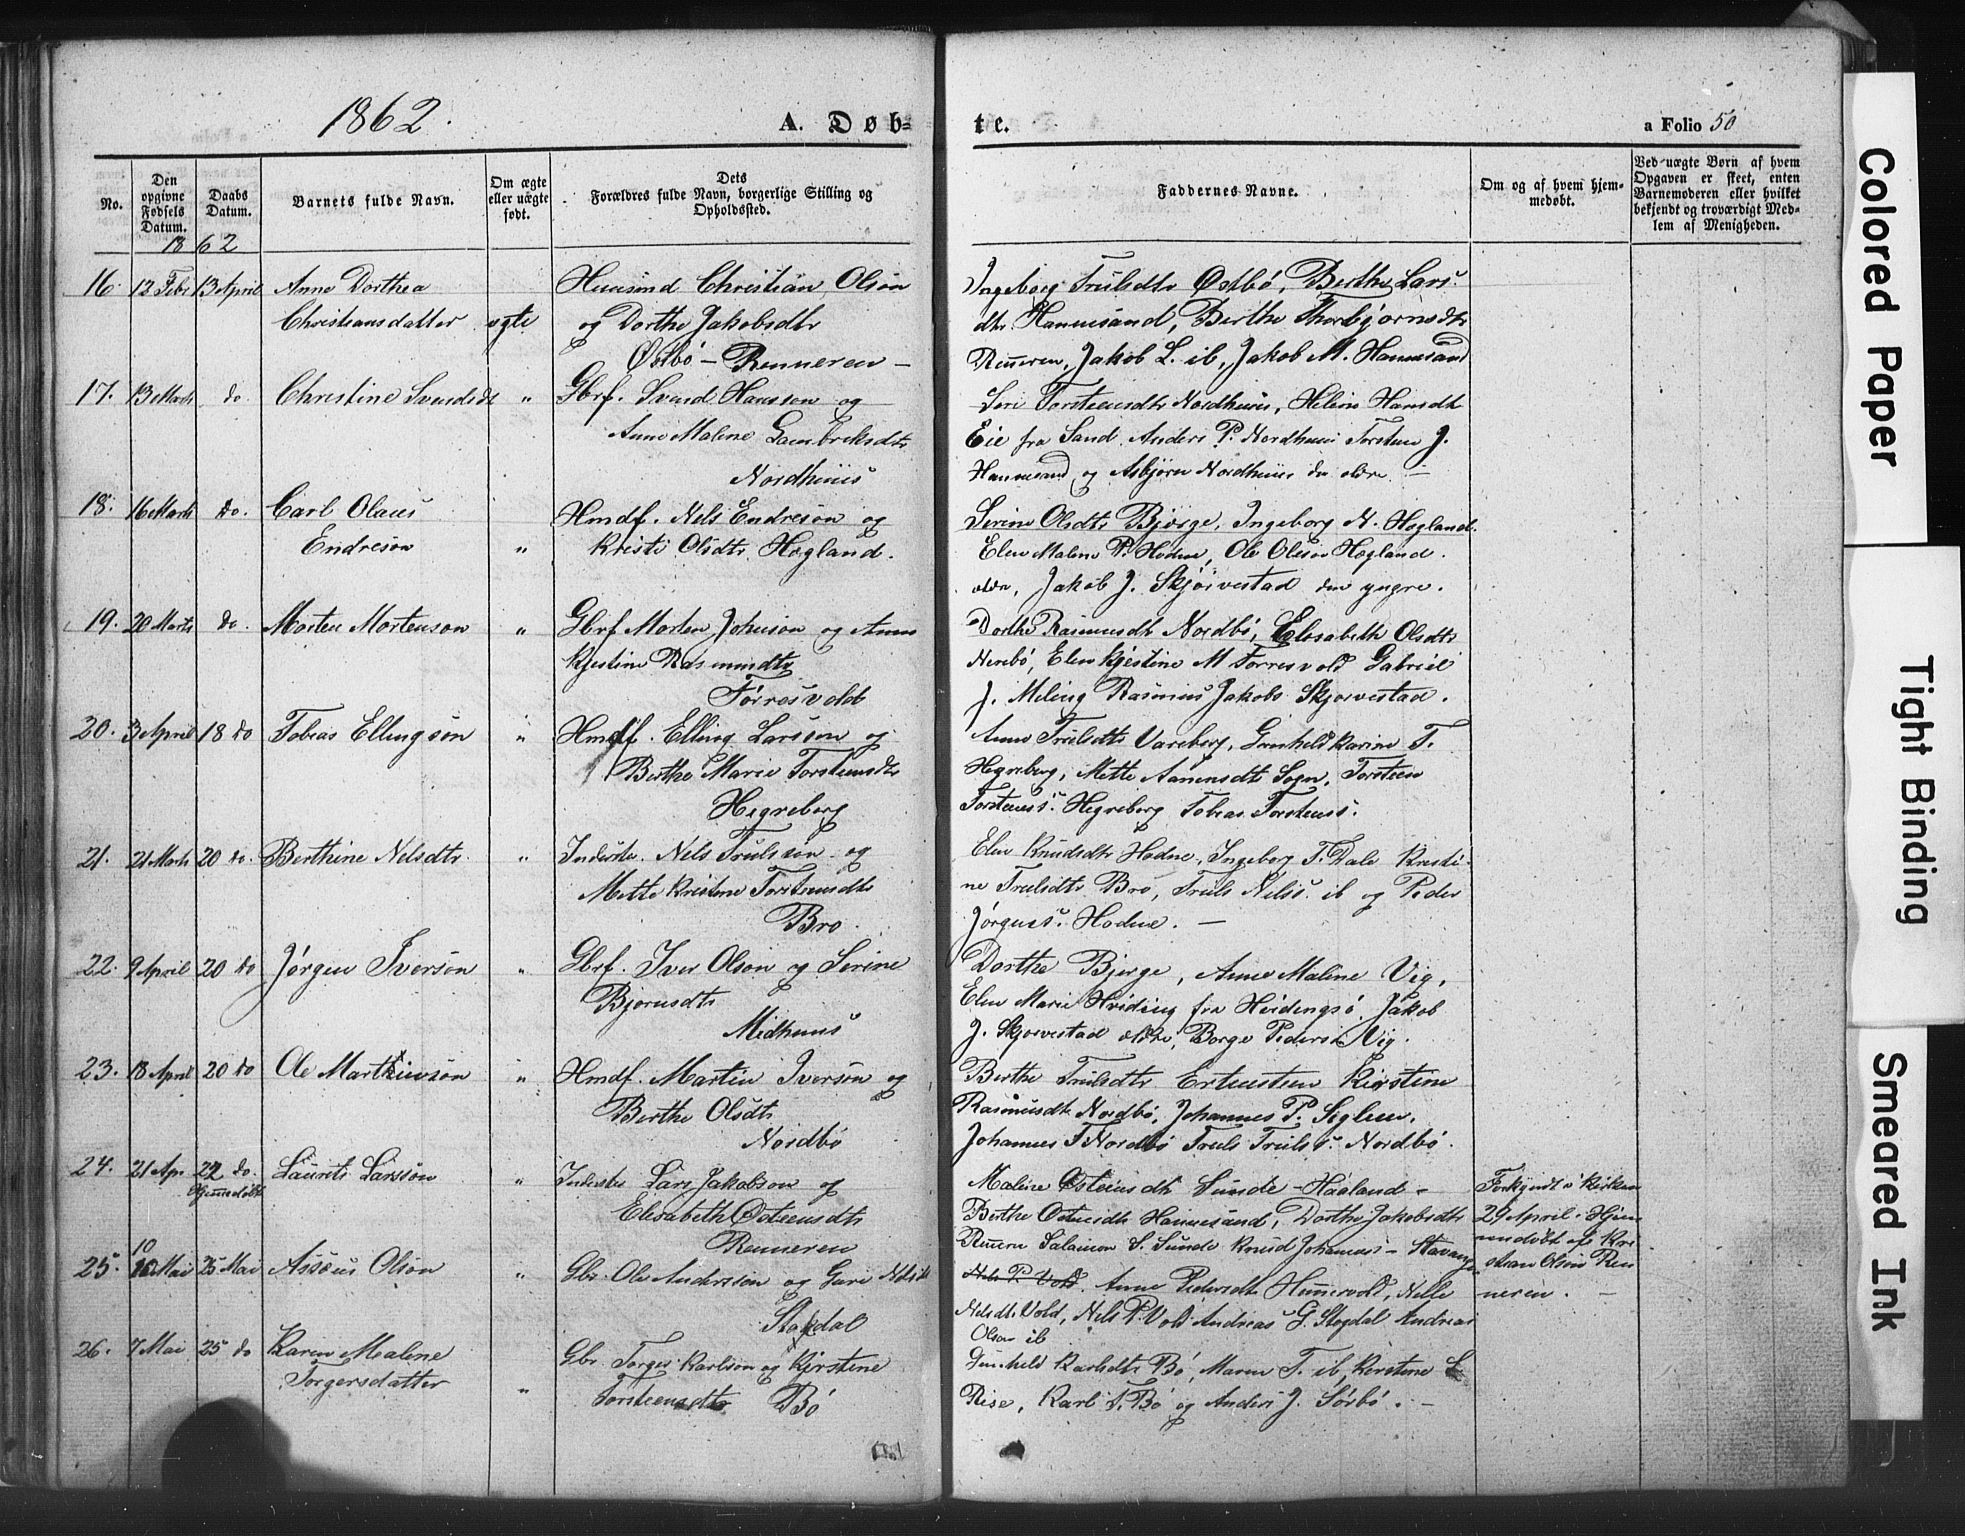 1862.
A. Døb-
te.
a Folio 50
No.
Den opgivne Fødsels Datum.
Daabs Datum.
Barnets fulde Navn.
Om ægte eller uægte født.
Dets Forældres fulde Navn, borgerlige Stilling og Opholdssted.
Faddernes Navne.
Om og af hvem hjemmedøbt.
Ved uægte Børn af hvem
Opgaven er skeet, enten
Barnemoderen eller hvilket
bekjendt og troværdigt Med-
lem af Menigheden.
1862
16. 12 Febr 13 April Anne Dorthea Huusmd Christian Olsön
Christiansdatter ægte og Dorthe Jakobsdtr
Østbö - Renneren -
Ingeborg Trulsdtr Østbö, Berthe Lars
dtr Hannesand, Berthe Thorbjørnsdtr
Renneren, Jakob L. ib, Jakob M. Hannesand
17. 13 Marts do Christine Svendsdt " Gbrf. Svend Hansson og
Anne Malene Lambriksdtr
Nordhuus
Siri Torsteensdtr Nordhuus, Helene Hansdt
Eie fra Sand, Anders P. Nordhuus Torsteen J.
Hannesand og Asbjörn Nordhuus den ældre. -
18. 16 Marts do. Carl Olaus Hmdf. Nels Endresön og
Endresön " Kristi Olsdtr Høgland.
Serine Olsdtr Bjørge, Ingeborg N. Høgland.
Elen Malene P. Hodne, Ole Olsson Høgland
ældre, Jakob J. Skjörvestad den yngre.
19. 20 Marts do. Morten Mortenson " Gbrf Morten Johnson og Anne
Kjestine Rasmusdtr
Förresvold
Dorthe Rasmusdtr Nordbö, Elisabeth Olsdtr
Nerebö, Elen Kjestine M Førresvold Gabriel
J. Meling Rasmus Jakobs Skjørvestad.
20. 3 April 18 do Tobias Ellingsön " Hmdf. Elling Larsson og
Berthe Marie Torsteensdtr
Hegreberg
Anne Trulsdtr Vareberg, Gunhild Karine T.
Hegreberg, Mette Aanensdtr Sogn, Torsteen
Torsteenss. Hegreberg Tobias Torsteenss.
21. 21 Marts 20 do. Berthine Nelsdtr. " Inderste. Nels Trulssön og
Mette Kristene Torsteensdtr
Bro.
Elen Knudsdtr Hodne, Ingeborg T. Dale Kristi-
ne Trulsdtr Bro, Truls Nelss. ib og Peder
Jørgenss. Hodne. -
22. 9 April 20 do Jørgen Iversön " Gbrf. Iver Olsön og Serine
Bjornsdtr
Midhuus
Dorthe Bjerge, Anne Malene Vig,
Elen Marie Hviding fra Hvidingsö. Jakob
J. Skjörvestad ældre, Borge Peders. Vig.
23. 18 April 20 do Ole Martinsön " Hmdf. Martin Iversön og
Berthe Olsdtr
Nordbö
Berthe Trulsdtr Ertensteen Kirstine
Rasmusdtr Nordbö, Johannes P. Siglen,
Johannes T Nordbö Truls Trulss. Nordbö.
24. 21 Ap. 22 do. Laurits Larsson " Inderster Lars Jakobson og
Hjemmedøbt Elisabeth Østeensdtr
Renneren
Malene Østeensdtr Sunde - Haaland -
Berthe Osteensdtr Hannesand, Dorthe Jakobsdtr
Renneren Salamon S. Sunde Knud Johannes - Stavanger
Forkyndt i Kirken
29 April. Hjem
medöbt af Kri
stian Olsön Ren
neren. -
25. 10 Mai 25 Mai Assæus Olsön " Gbr. Ole Andersson og Guri Nelsdt
Stogdal
Nels P. Vold. Anne Pedersdtr Hunnevold, Nille
Nelsdtr Vold, Nels P. Vold Andreas G. Stogdal Andreas
Olsen ib
26. 7 Mai 25 do Karen Malene Gbr. Torger Karlson og Kjerstine
Torgersdatter " Torsteensdtr Bö
Gunhild Karlsdtr Bö, Maren T. ib Kirstene L
Rise, Karl T. Bö og Anders J. Sörbö. -
Colored Paper
Tight Binding
Smeared Ink